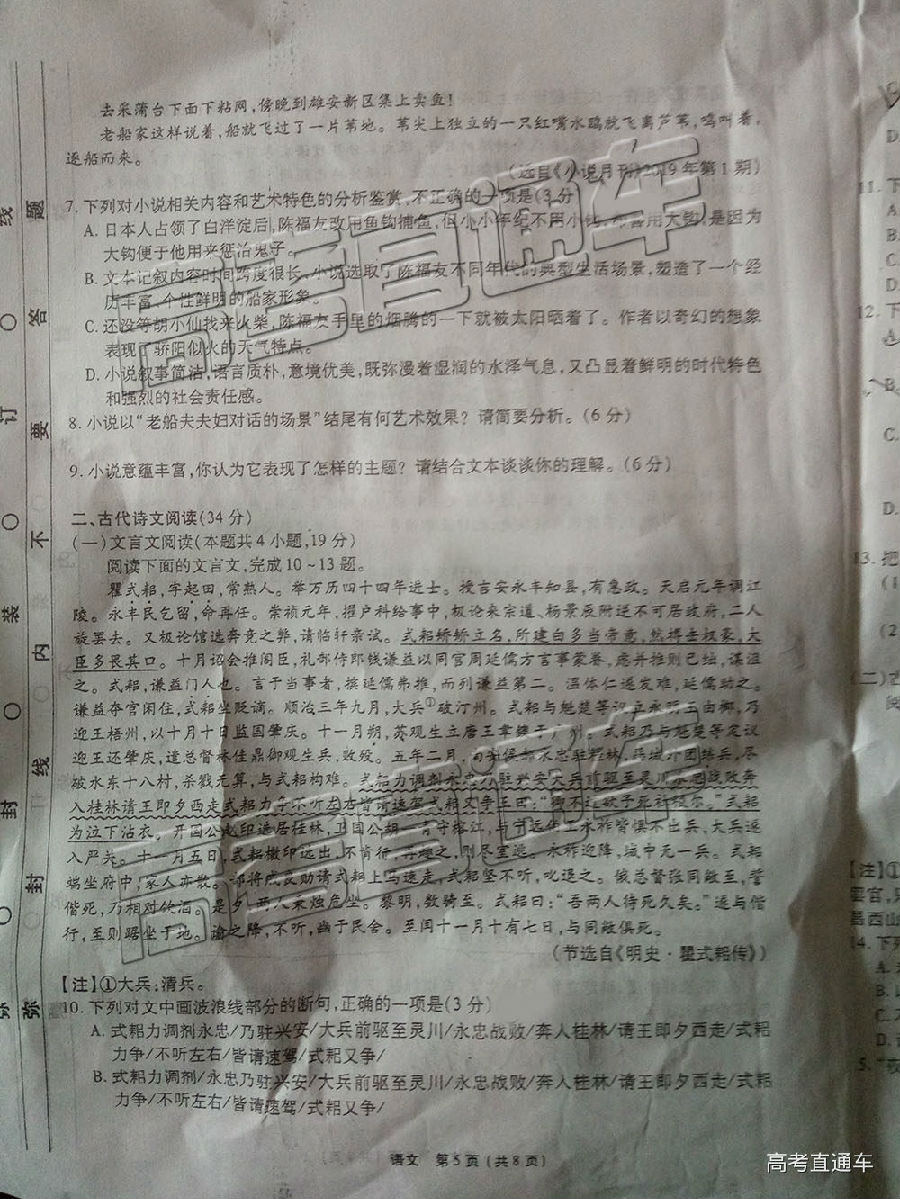 去采蒲台下面下粘网,傍晚到雄安新区集上卖鱼!
老船家这样说着,船就飞过了一片苇地。苇尖上独立的一只红嘴水鸥就飞离芦苇,鸣叫着,
逐船而来。
(选自《小说月刊》2019年第1期)
7. 下列对小说相关内容和艺术特色的分析鉴赏,不正确的一项是(3分
A. 日本人占领了白洋淀后,陈福友改用鱼钩捕鱼,但小小年纪不用小钩,却喜用大钩,是因为
大钩便于他用来惩治鬼子。
B. 文本记叙内容时间跨度很长,小说选取了陈福友不同年代的典型生活场景,塑造了一个经
历丰富、个性鲜明的船家形象。
C. 还没等胡小仙找来火柴,陈福友手里的烟腾的一下就被太阳晒着了。作者以奇幻的想象
表现了骄阳似火的天气特点。
D. 小说叙事简洁,语言质朴,意境优美,既弥漫着湿润的水泽气息,又凸显着鲜明的时代特色
和强烈的社会责任感。
8. 小说以“老船夫夫妇对话的场景”结尾有何艺术效果?请简要分析。(6分)
9. 小说意蕴丰富,你认为它表现了怎样的主题?请结合文本谈谈你的理解。(6分)
二、古代诗文阅读(34分)
(一)文言文阅读(本题共4小题,19分)
阅读下面的文言文,完成10~13题。
瞿式耜,字起田,常熟人。举万历四十四年进士。授吉安永丰知县,有惠政。天启元年调江
陵。永丰民乞留,命再任。崇祯元年,擢户科给事中,极论来宗道、杨景辰附逆不可居政府,二人
旋罢去。又极论馆选奔竞之弊,请临轩亲试。式耜矫矫立名,所建白多当帝意,然搏击权豪,大
臣多畏其口。十月诏会推阁臣,礼部侍郎钱谦益以同官周延儒方言事蒙眷,虑并推则己绌,谋沮
之。式耜,谦益门人也。言于当事者,摈延儒弗推,而列谦益第二。温体仁遂发难,延儒助之。
谦益夺官闲住,式耜坐贬谪。顺治三年九月,大兵①破汀州。式耜与魁楚等议立永明王由榔,乃
迎王梧州,以十月十日监国肇庆。十一月朔,苏观生立唐王聿𨮁于广州。式耜乃与魁楚等定议
迎王还肇庆,遣总督林佳鼎御观生兵,败殁。五年二月,南安侯郝永忠驻桂林,恶城外团练兵,尽
破水东十八村,杀戮无算,与式耜构难。式耜力调剂永忠乃驻兴安大兵前驱至灵川永忠战败奔
入桂林请王即夕西走式耜力争不听左右皆请速驾式耜又争王曰:“卿不过欲予死社稷尔。”式耜
为泣下沾衣。开国公赵印选居桂林,卫国公胡一青守榕江,与宁远伯王永祚皆惧不出兵,大兵遂
入严关。十一月五日,式耜檄印选出,不肯行,再趣之,则尽室逃。永祚迎降,城中无一兵。式耜
端坐府中,家人亦散。部将戚良勋请式耜上马速走,式耜坚不听,叱退之。俄总督张同敞至,誓
偕死,乃相对饮酒。是夕,两人秉烛危坐。黎明,数骑至。式耜曰:“吾两人待死久矣。”遂与偕
行,至则踞坐于地。谕之降,不听,幽于民舍。至闰十一月十有七日,与同敞俱死。
(节选自《明史·瞿式耜传》)
【注】①大兵:清兵。
10. 下列对文中画波浪线部分的断句,正确的一项是(3分)
A. 式耜力调剂永忠/乃驻兴安/大兵前驱至灵川/永忠战败/奔入桂林/请王即夕西走/式耜
力争/不听左右/皆请速驾/式耜又争/
B. 式耜力调剂/永忠乃驻兴安/大兵前驱至灵川/永忠战败/奔入桂林/请王即夕西走/式耜
力争/不听左右/皆请速驾/式耜又争/
语文 第5页(共8页)
线 订 装 封 弥
题 答 要 不 内 线 封 弥
D.
11. 下
A.
B.
C.
D.
12. 下
A
B.
C.
D.
13. 把
(1
(2
(二)古
阅
【注】①
罢官,
邑西山
14. 下列
A.
B.
C.
D.
5. “
高考直通车
高考直通车
高考直通车